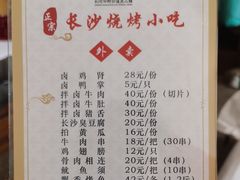 正宗
长沙烧烤小吃
外卖
卤鸡肾 28元/份
卤鸭掌 5元/只
拌卤牛肉 40元/份(切片)
拌卤牛肚 40元/份
拌卤猪舌 30元/份
长沙臭豆腐 20元/份
拍黄瓜 16元/份
牛肉串 58元/把(30串)
鸡翅膀 12元/只
骨肉相连 20元/把(4串)
鱿鱼须 20元/把(10串)